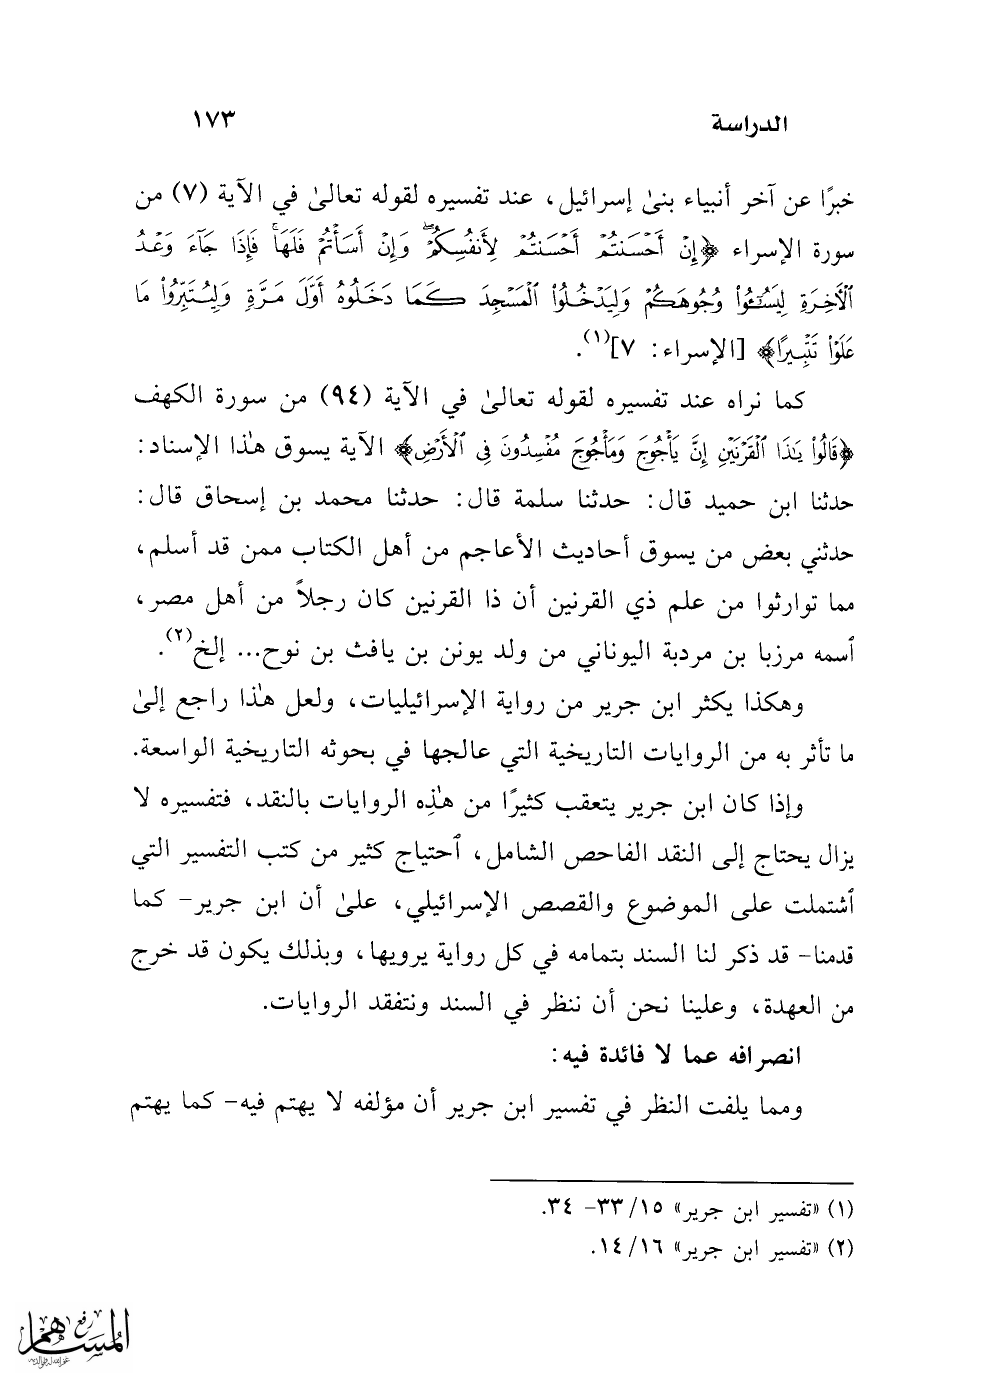 الدراسة ١٧٣
خبرًا عن آخر أنبياء بنىٰ إسرائيل، عند تفسيره لقوله تعالىٰ في الآية (٧) من
سورة الإسراء ﴿إِنْ أَحْسَنتُمْ أَحْسَنتُمْ لِأَنفُسِكُمْ ۖ وَإِنْ أَسَأْتُمْ فَلَهَا ۚ فَإِذَا جَآءَ وَعْدُ
ٱلْأَخِرَةِ لِيَسُۥٓـُٔوا۟ وُجُوهَكُمْ وَلِيَدْخُلُوا۟ ٱلْمَسْجِدَ كَمَا دَخَلُوهُ أَوَّلَ مَرَّةٍ وَلِيُتَبِّرُوا۟ مَا
عَلَوْا۟ تَتْبِيرًا﴾ [الإسراء: ٧](١).
كما نراه عند تفسيره لقوله تعالىٰ في الآية (٩٤) من سورة الكهف
﴿قَالُوا۟ يَـٰذَا ٱلْقَرْنَيْنِ إِنَّ يَأْجُوجَ وَمَأْجُوجَ مُفْسِدُونَ فِى ٱلْأَرْضِ﴾ الآية يسوق هٰذا الإسناد:
حدثنا ابن حميد قال: حدثنا سلمة قال: حدثنا محمد بن إسحاق قال:
حدثني بعض من يسوق أحاديث الأعاجم من أهل الكتاب ممن قد أسلم،
مما توارثوا من علم ذي القرنين أن ذا القرنين كان رجلاً من أهل مصر،
ٱسمه مرزبا بن مردبة اليوناني من ولد يونن بن يافث بن نوح... إلخ(٢).
وهكذا يكثر ابن جرير من رواية الإسرائيليات، ولعل هٰذا راجع إلىٰ
ما تأثر به من الروايات التاريخية التي عالجها في بحوثه التاريخية الواسعة.
وإذا كان ابن جرير يتعقب كثيرًا من هٰذِه الروايات بالنقد، فتفسيره لا
يزال يحتاج إلى النقد الفاحص الشامل، ٱحتياج كثير من كتب التفسير التي
ٱشتملت على الموضوع والقصص الإسرائيلي، علىٰ أن ابن جرير- كما
قدمنا- قد ذكر لنا السند بتمامه في كل رواية يرويها، وبذلك يكون قد خرج
من العهدة، وعلينا نحن أن ننظر في السند ونتفقد الروايات.
انصرافه عما لا فائدة فيه:
ومما يلفت النظر في تفسير ابن جرير أن مؤلفه لا يهتم فيه- كما يهتم
(١) «تفسير ابن جرير» ١٥/ ٣٣- ٣٤.
(٢) «تفسير ابن جرير» ١٦/ ١٤.
رفع
المساهم